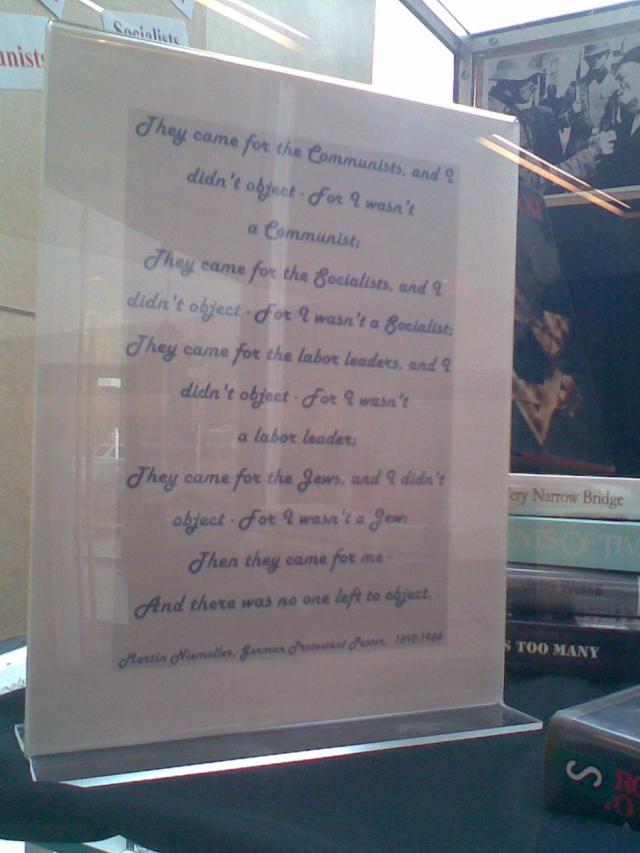 unists
Socialists
They came for the Communists, and I
didn't object - For I wasn't
a Communist;
They came for the Socialists, and I
didn't object - For I wasn't a Socialist;
They came for the labor leaders, and I
didn't object - For I wasn't
a labor leader;
They came for the Jews, and I didn't
object - For I wasn't a Jew;
Then they came for me -
And there was no one left to object.
Martin Niemoller, German Protestant Pastor, 1892-1984
ery Narrow Bridge
ENTS OF TIM
S TOO MANY
S